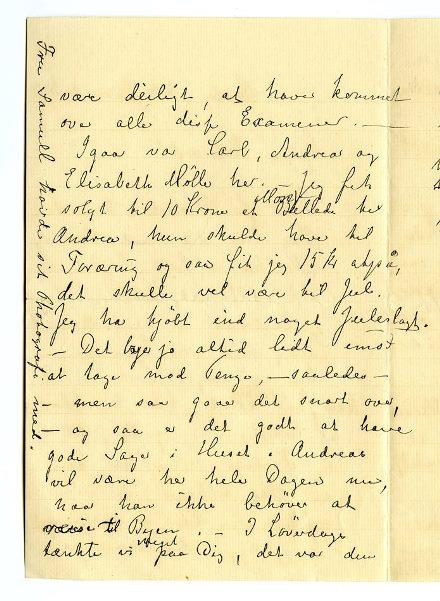 være deiligt, at have kommet
over alle disse Examener. —
Igaar var Carl, Andrea og
Elisabeth Mølle her. — Jeg fik
solgt til 10 Krone et Billede til
Andrea, hun skulde have til
Foræring og saa fik jeg 15 Kr atpaa,
det skulle vel være til Jul.
Jeg har kjøbt ind noget Juleslagt.
— Det er jo altid lidt imod
at tage mod Penge, — saaledes —
— men saa gaar det snart over,
— og saa er det godt at have
gode Sager i Huset. Andreas
vil være her hele Dagen nu,
naar han ikke behøver at
til Byen. — I Løverdags
tænkte vi meget paa Dig, det var den
Fru Samuell havde sit Photografi med.